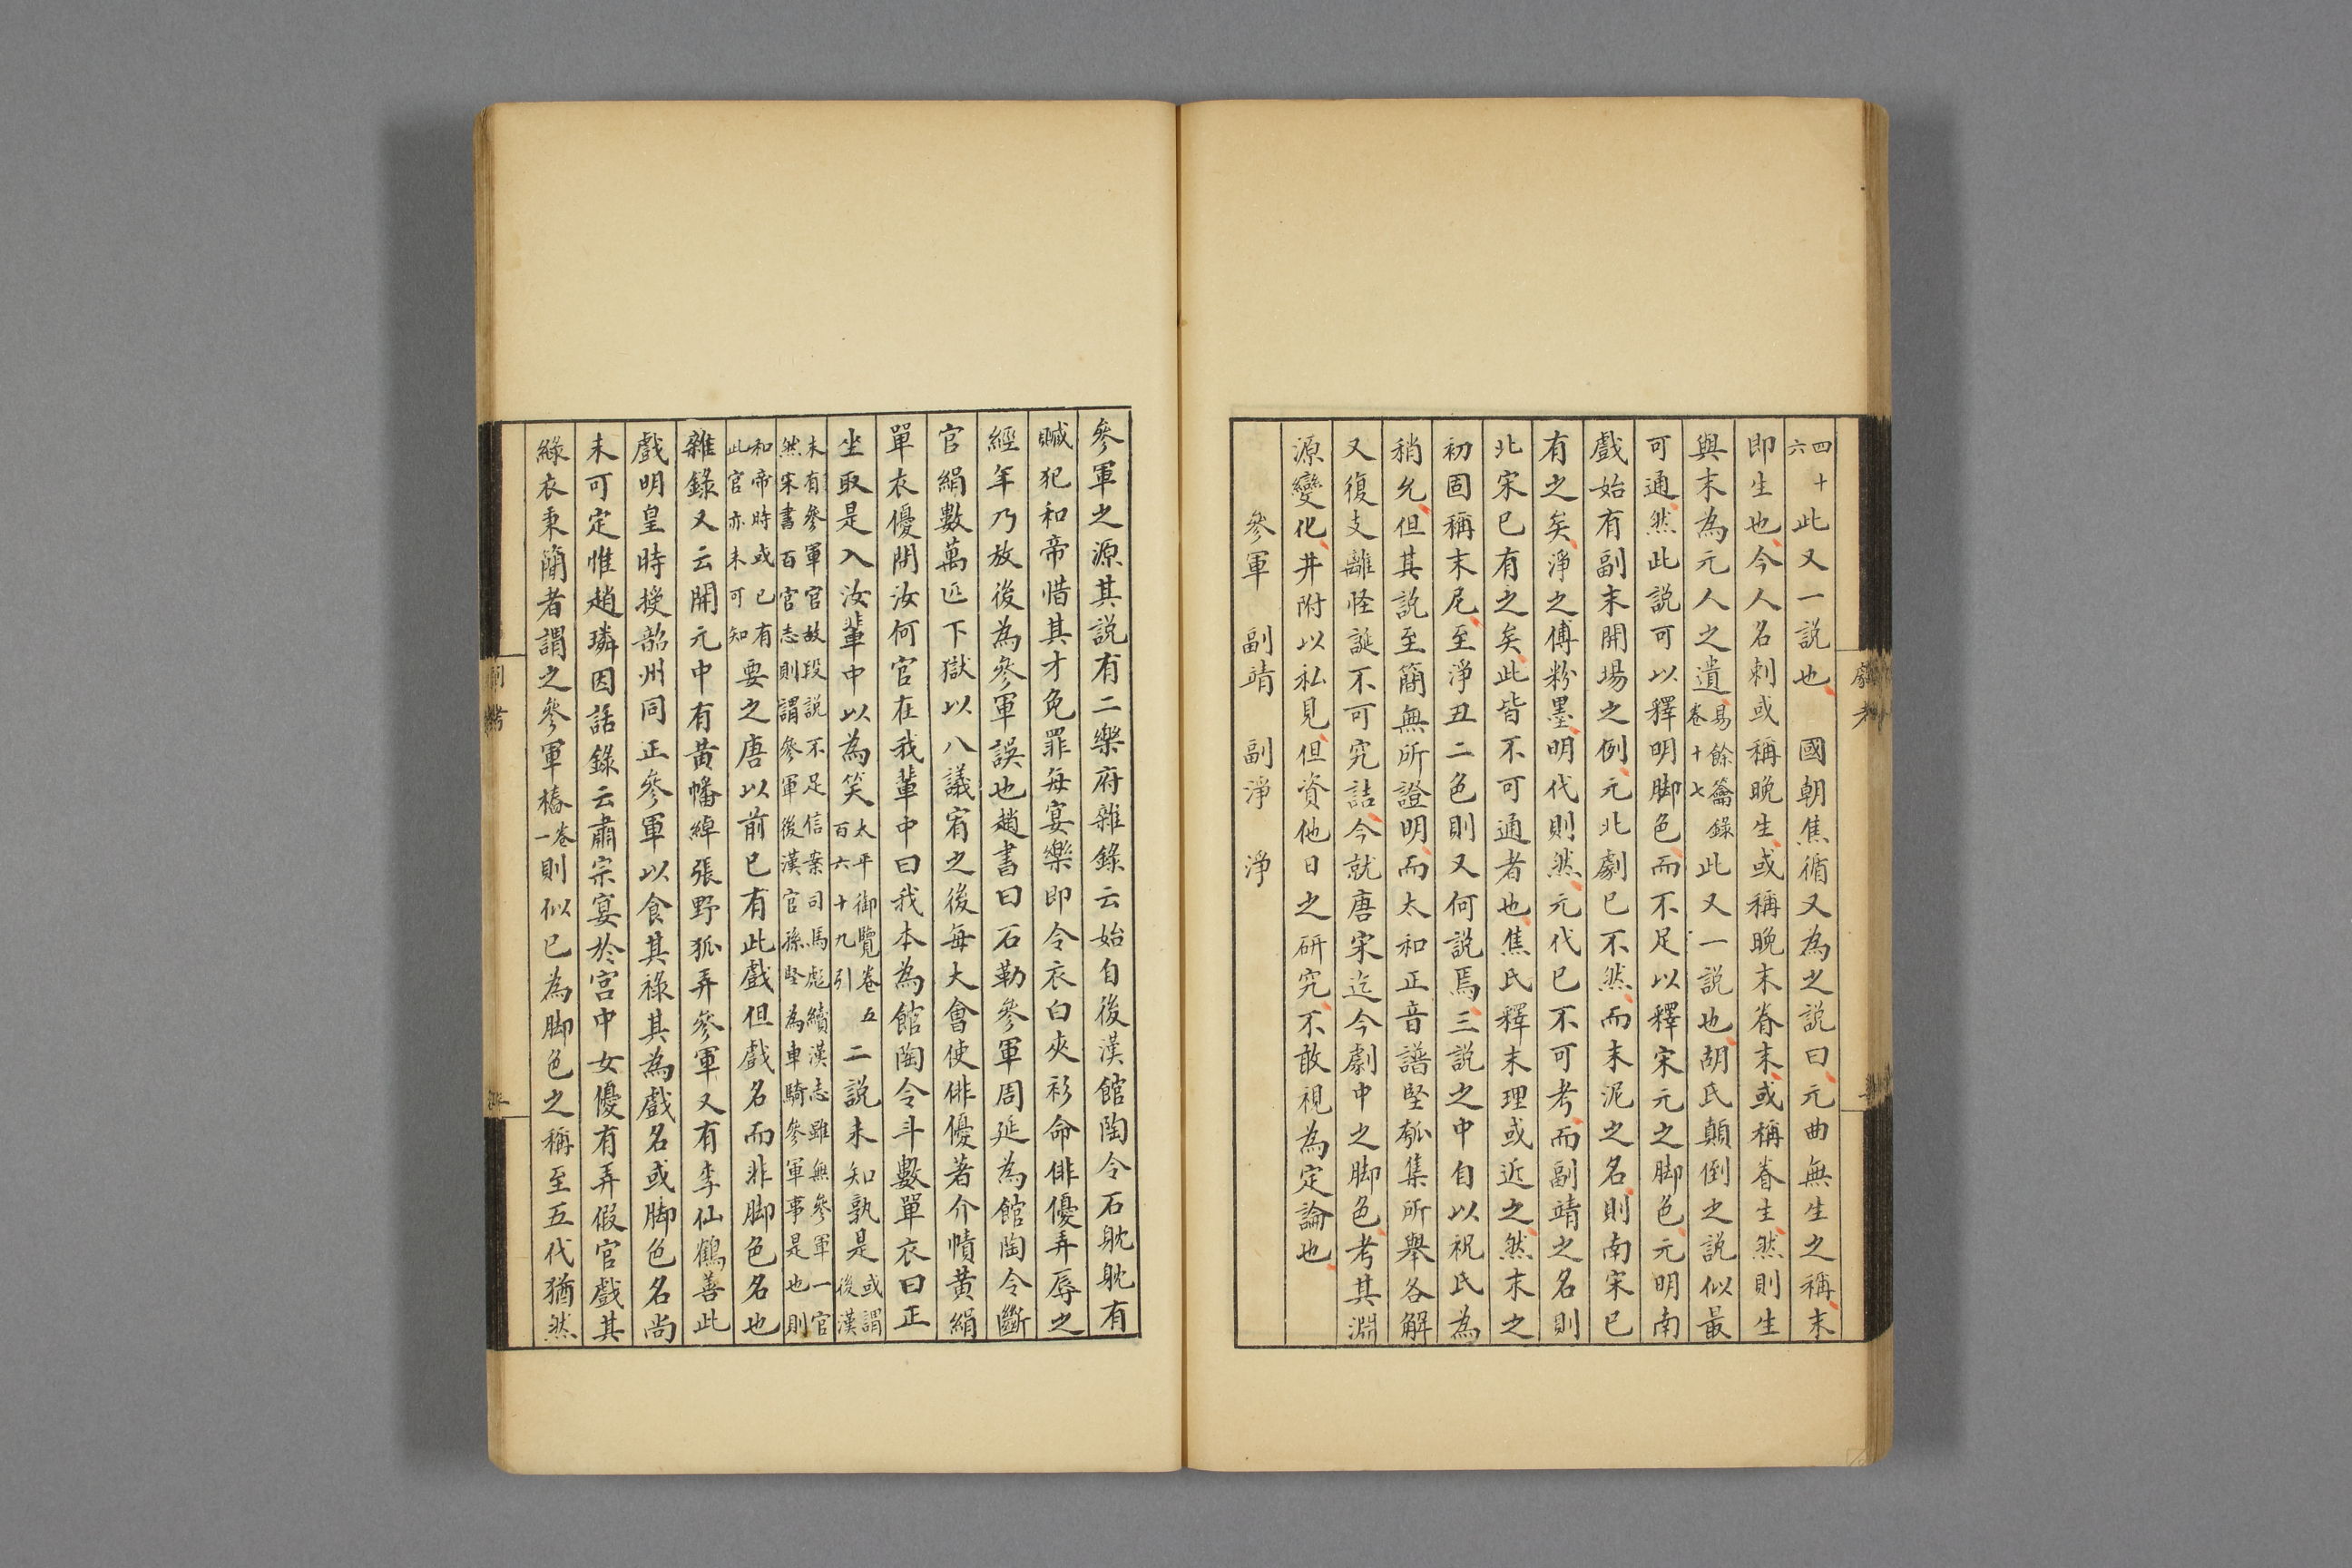 四十六此又一說也國朝焦循又為之說曰元曲無生之稱末
即生也今人名刺或稱晚生或稱晚末眷末或稱眷生然則生
與末為元人之遺易餘籥錄卷十七此又一說也胡氏顛倒之說似最
可通然此說可以釋明脚色而不足以釋宋元之脚色元明南
戲始有副末開場之例元北劇已不然而末泥之名則南宋已
有之矣淨之傅粉墨明代則然元代已不可考而副靖之名則
北宋已有之矣此皆不可通者也焦氏釋末理或近之然末之
初固稱末尼至淨丑二色則又何說焉三說之中自以祝氏為
稍允但其說至簡無所證明而太和正音譜堅瓠集所舉各解
又復支離怪誕不可究詰今就唐宋迄今劇中之脚色考其淵
源變化并附以私見但資他日之研究不敢視為定論也
參軍 副靖 副淨 淨
參軍之源其說有二樂府雜錄云始自後漢館陶令石躭躭有
贓犯和帝惜其才免罪每宴樂即令衣白夾衫命俳優弄辱之
經年乃放後為參軍誤也趙書曰石勒參軍周延為館陶令斷
官絹數萬匹下獄以八議宥之後每大會使俳優著介幘黃絹
單衣優問汝何官在我輩中曰我本為館陶令斗數單衣曰正
坐取是入汝輩中以為笑太平御覽卷五百六十九引二說未知孰是或謂後漢
未有參軍官故段說不足信案司馬彪續漢志雖無參軍一官然宋書百官志則謂參軍後漢官孫堅為車騎參軍事是也則
和帝時或已有此官亦未可知要之唐以前已有此戲但戲名而非脚色名也
雜錄又云開元中有黃幡綽張野狐弄參軍又有李仙鶴善此
戲明皇時授韶州同正參軍以食其祿其為戲名或脚色名尚
未可定惟趙璘因話錄云肅宗宴於宮中女優有弄假官戲其
綠衣秉簡者謂之參軍樁卷一則似已為脚色之稱至五代猶然